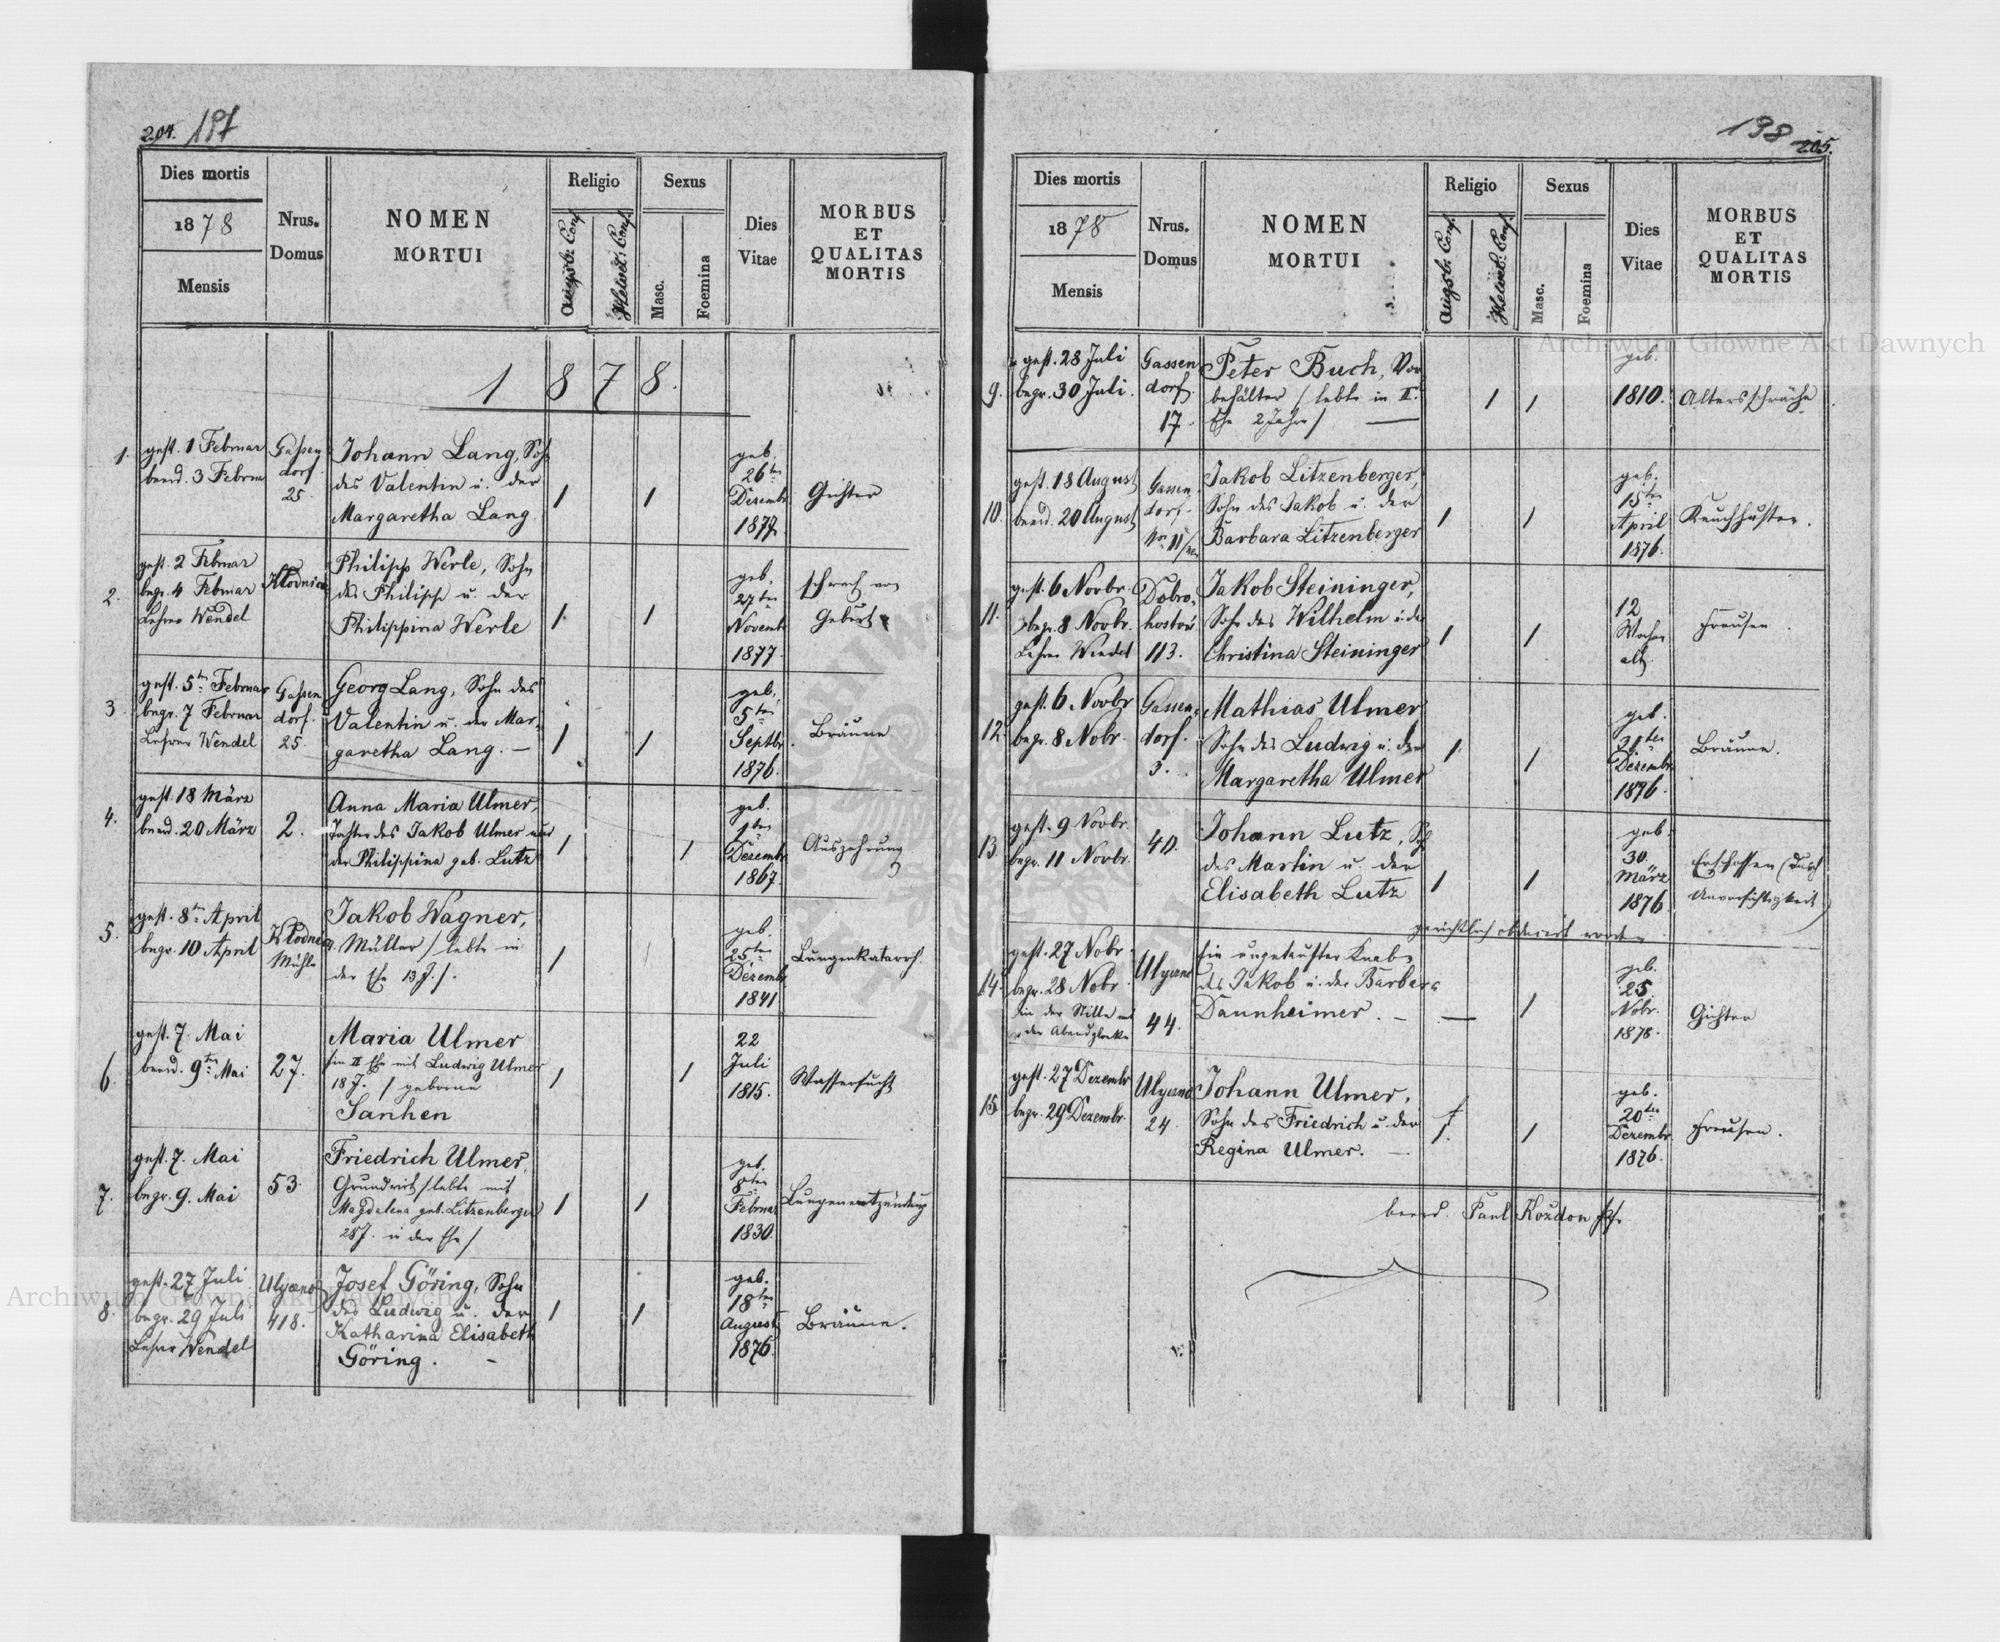 204. 197
Dies mortis
1878
Mensis
Nrus.
Domus
NOMEN
MORTUI
Religio
Augsb. Conf.
Helvet. Conf.
Sexus
Masc.
Foemina
Dies
Vitae
MORBUS
ET
QUALITAS
MORTIS
1878.
1.
gest. 1 Februar
beerd. 3 Februar
Gassen
dorf
25.
Johann Lang, Sohn
des Valentin u. der
Margaretha Lang
geb.
26ten
Dezembr
1877
Gichter
2.
gest. 2 Februar
begr. 4 Februar
Lehrer Wendel
Philipp Werle, Sohn
des Philipp u. der
Philippina Werle
geb.
27ten
Novemb
1877.
schwach von
Geburt
3.
gest. 5ten Februar
begr. 7 Februar
Lehrer Wendel
Gassen
dorf.
25.
Georg Lang, Sohn des
Valentin u. der Mar-
garetha Lang. —
geb.
5ten
Septbr.
1876.
Bräune
4.
gest. 18 März
beerd. 20 März
2.
Anna Maria Ulmer,
Tochter des Jakob Ulmer und
der Philippina geb. Lutz
geb.
1ten
Dezembr
1867.
Auszehrung
5.
gest. 8ten April
begr. 10 April
Mühle
Jakob Wagner,
Müller / lebte in
der Ehe 13 J. /.
geb.
25ten
Dezembr
1841
Lungenkatarrh.
6.
gest. 7. Mai
beerd. 9ten Mai
27.
Maria Ulmer
/ in II Ehe mit Ludwig Ulmer
18 J. / geborne
Sanhen
22
Juli
1815.
Wassersucht
7.
gest. 7. Mai
begr. 9. Mai
53.
Friedrich Ulmer,
Grundwirt / lebte mit
Magdalena geb. Litzenberger
28 J. in der Ehe /
geb.
8ten
Februar
1830.
Lungenentzündung
8.
gest. 27 Juli
begr. 29 Juli
Lehrer Wendel
Ulyczno
418.
Josef Göring, Sohn
des Ludwig u. der
Katharina Elisabeth
Göring. —
geb.
18ten
August
1876.
Bräune.
198 205.
Dies mortis
1878
Mensis
Nrus.
Domus
NOMEN
MORTUI
Religio
Augsb. Conf.
Helvet. Conf.
Sexus
Masc.
Foemina
Dies
Vitae
MORBUS
ET
QUALITAS
MORTIS
9.
gest. 28 Juli
begr. 30 Juli.
Gassen
dorf
17.
Peter Buch, Vor
behälter / lebte in II.
Ehe 2 Jahre /
geb.
1810.
Altersschwäche
10.
gest. 18 August
beerd. 20 August
Gassen
dorf
Nr. 11
Jakob Litzenberger,
Sohn des Jakob u. der
Barbara Litzenberger
geb.
15ten
April
1876.
Keuchhusten.
11.
gest. 6 Novbr.
begr. 8 Novbr.
Lehrer
Dobro-
hostów
113.
Jakob Steininger,
Sohn des Wilhelm u. der
Christina Steininger
12
Wochen
alt.
Freusen.
12.
gest. 6 Novbr
begr. 8 Nobr.
Gassen-
dorf.
3.
Mathias Ulmer
Sohn des Ludwig u. der
Margaretha Ulmer
geb.
31ten
Dezembr
1876.
Bräune.
13.
gest. 9 Novbr.
begr. 11 Novbr.
40.
Johann Lutz,
des Martin u. der
Elisabeth Lutz
geb.
30.
März
1876.
Erschossen (durch
Unvorsichtigkeit)
gerichtlich obducirt worden
14.
gest. 27 Nobr.
begr. 28 Nobr.
in der Stille mit
der Abendglocke
Ulyczno
44.
Ein ungetaufter Knabe
des Jakob u. der Barbara
Daunheimer. —
geb.
25.
Nobr.
1878.
Gichter
15.
gest. 27 Dezembr
begr. 29 Dezembr.
Ulyczno
24.
Johann Ulmer,
Sohn des Friedrich u. der
Regina Ulmer. —
geb.
20ten
Dezembr
1876.
Freusen.
beerd. Paul Kozdon Pfr.
Archiwum Główne Akt Dawnych
Archiwum Główne Akt Dawnych